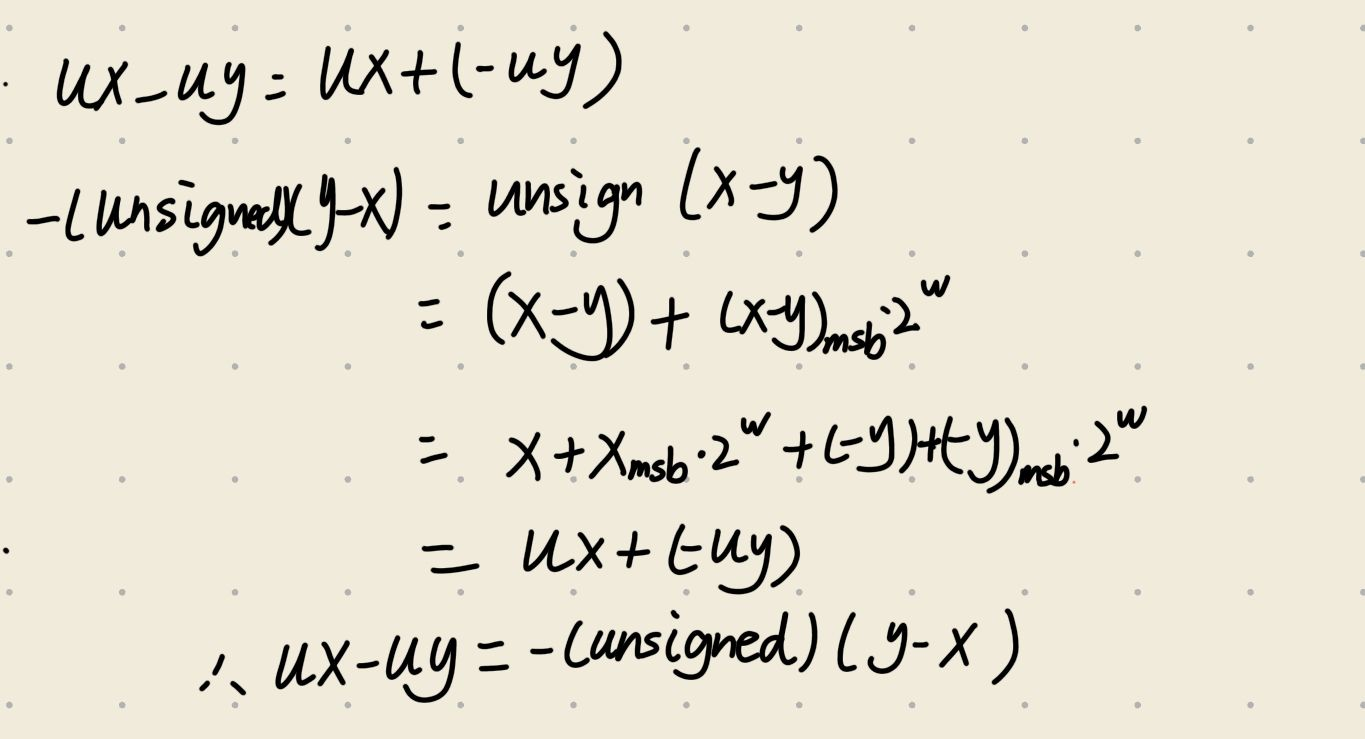 ux - uy = ux + (-uy)
-(unsigned)(y-x) = unsign (x-y)
= (x-y) + (x-y)msb·2^w
= x + xmsb·2^w + (-y) + (-y)msb·2^w
= ux + (-uy)
∴ ux - uy = -(unsigned) (y-x)